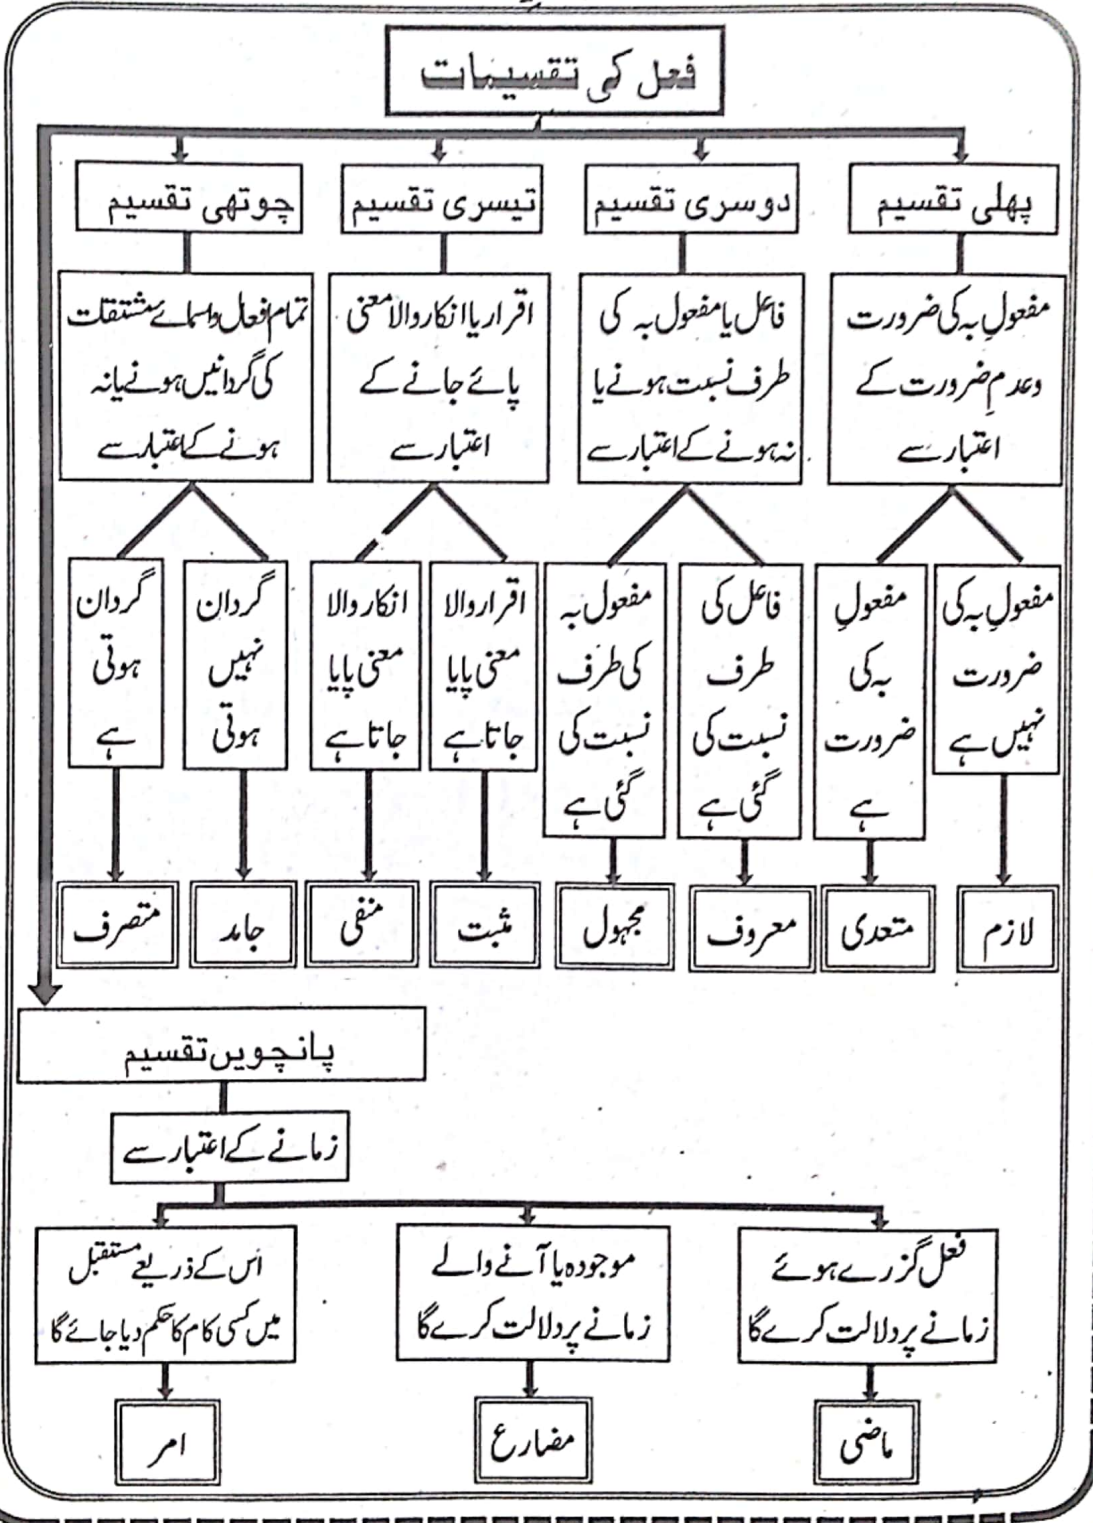 فعل کی تقسیمات
پہلی تقسیم
دوسری تقسیم
تیسری تقسیم
چوتھی تقسیم
مفعولِ بہ کی ضرورت
وعدمِ ضرورت کے
اعتبار سے
فاعل یا مفعول بہ کی
طرف نسبت ہونے یا
نہ ہونے کے اعتبار سے
اقرار یا انکار والا معنی
پائے جانے کے
اعتبار سے
تمام افعال واسمائے مشتقات
کی گردانیں ہونے یا نہ
ہونے کے اعتبار سے
مفعولِ بہ کی
ضرورت
نہیں ہے
مفعولِ
بہ کی
ضرورت
ہے
فاعل کی
طرف
نسبت کی
گئی ہے
مفعول بہ
کی طرف
نسبت کی
گئی ہے
اقرار والا
معنی پایا
جاتا ہے
انکار والا
معنی پایا
جاتا ہے
گردان
نہیں
ہوتی
گردان
ہوتی
ہے
لازم
متعدی
معروف
مجہول
مثبت
منفی
جامد
متصرف
پانچویں تقسیم
زمانے کے اعتبار سے
فعل گزرے ہوئے
زمانے پر دلالت کرے گا
موجودہ یا آنے والے
زمانے پر دلالت کرے گا
اُس کے ذریعے مستقبل
میں کسی کام کا حکم دیا جائے گا
ماضی
مضارع
امر